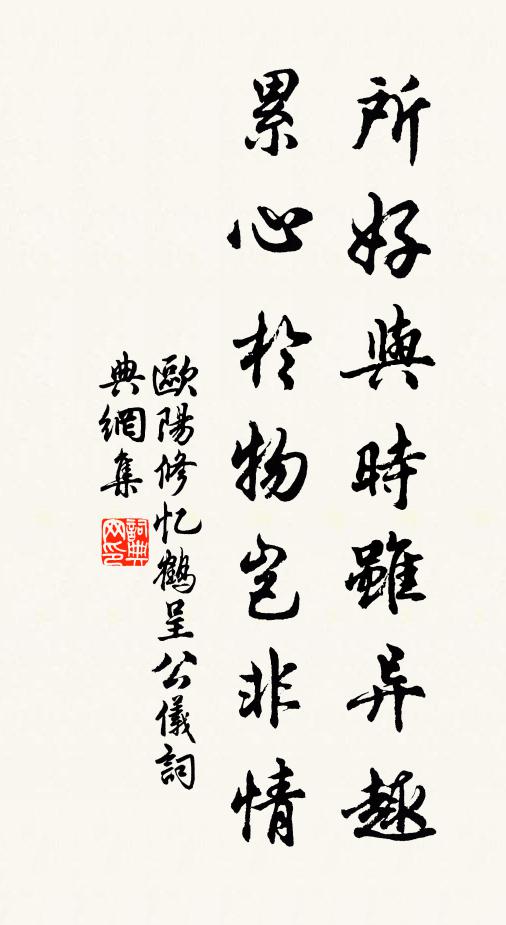 所好與時雖异趣
累心於物岂非情
歐陽修忆鶴呈公儀詞
典網集
詞典网印